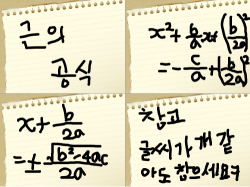 근의
공식
x²+b/a x+(b/2a)²
=-c/a+(b/2a)²
x+b/2a
=±√b²-4ac/2a
참고
글씨가 개같
아도 참으세요